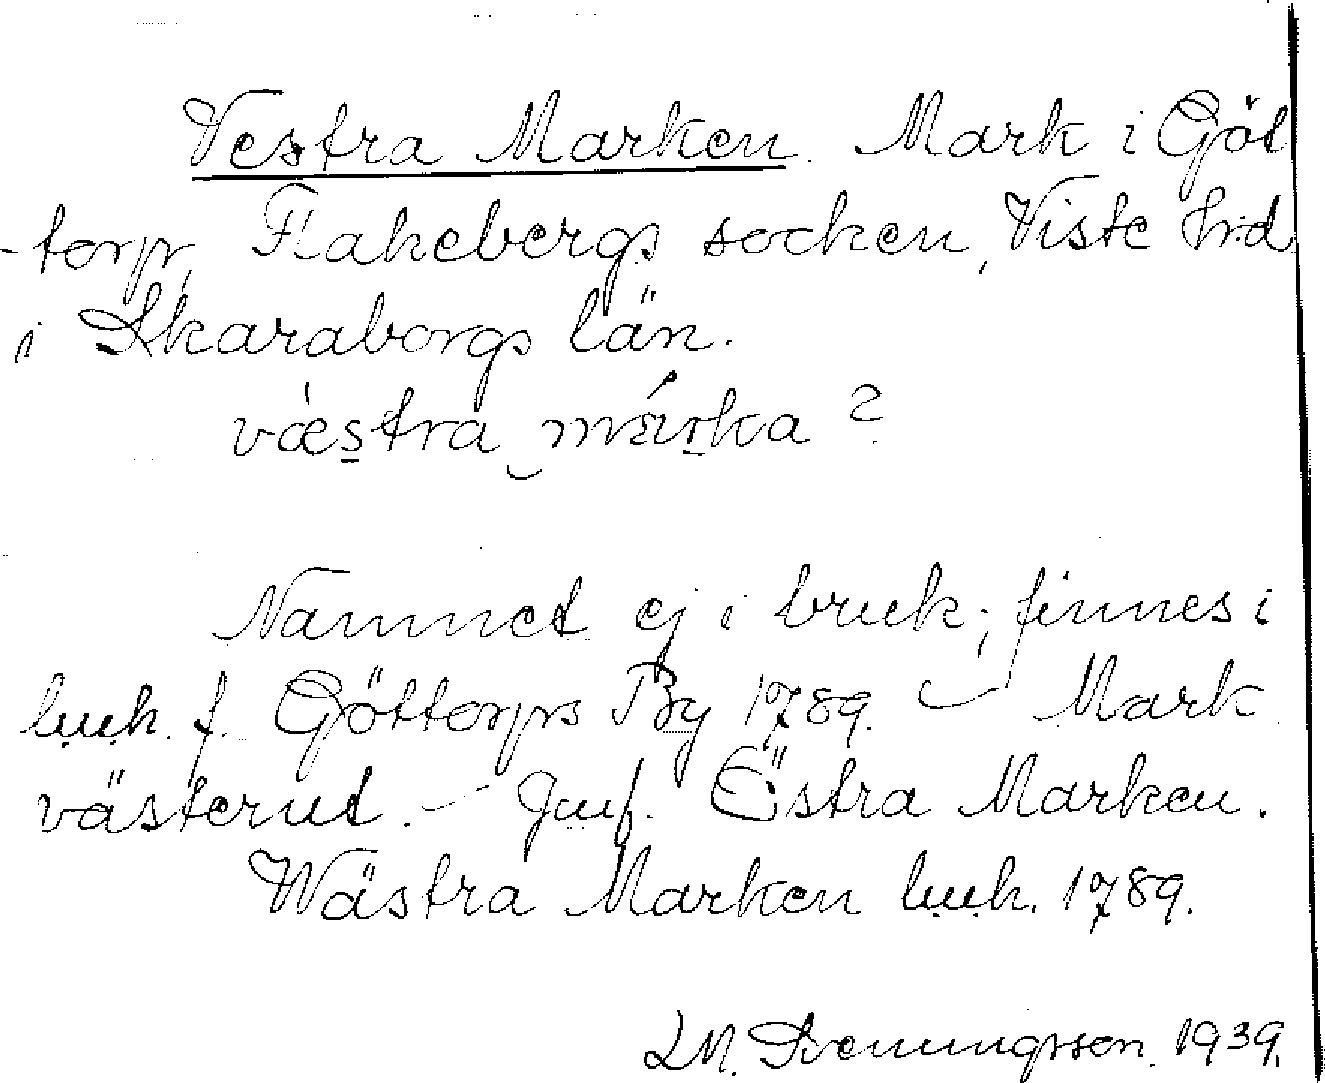 Vestra Marken. Mark i Göt
-torp, Flakebergs socken, Viste hrd
i Skaraborgs län.
væstra märka?
Namnet ej i bruk; finnes i
luuk. f. Göttorps By 1789. – Mark
västerut. – Jmf. Östra Marken.
Wästra Marken luuk. 1789.
LM. Svenungsson. 1939.